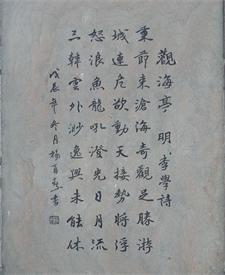 觀海亭 明 李學詩
秉節來滄海奇觀足勝游
城連危欲動天接勢將浮
怒浪魚龍吼澄光日月流
三韓雲外渺逸興未能休
戊辰年冬月楊 書